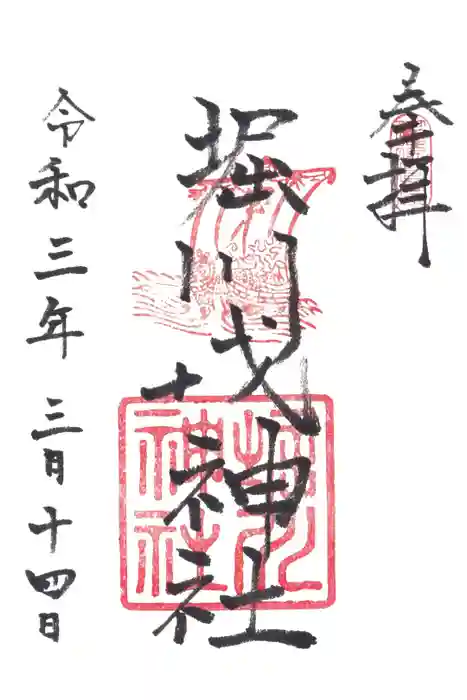 奉拝
堀川戎神社
堀川
神社
令和三年 三月十四日